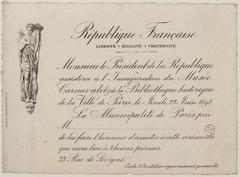 République Française
LIBERTÉ - ÉGALITÉ - FRATERNITÉ
Monsieur le Président de la République
assistera à l'Inauguration du Musée
Carnavalet & de la Bibliothèque historique
de la Ville de Paris, le Jeudi 23 Juin 1898
La Municipalité de Paris prie
M
de lui faire l'honneur d'assister à cette cérémonie
qui aura lieu à heures précises
23, Rue de Sévigné
Carte d'Invitation rigoureusement personnelle